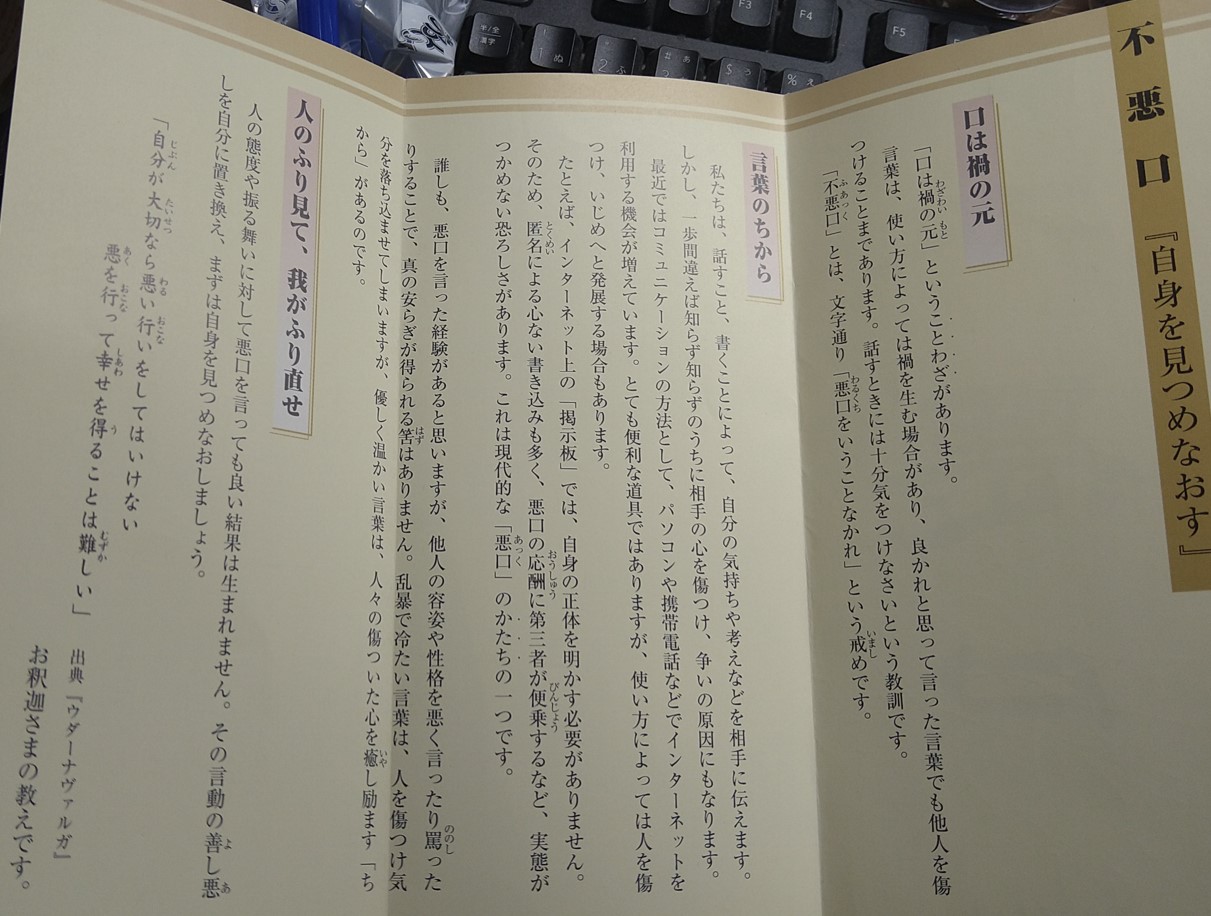 不悪口『自身を見つめなおす』
口は禍の元
「口は禍の元」ということわざがあります。
言葉は、使い方によっては禍を生む場合があり、良かれと思って言った言葉でも他人を傷
つけることまであります。話すときには十分気をつけなさいという教訓です。
「不悪口」とは、文字通り「悪口をいうことなかれ」という戒めです。
言葉のちから
私たちは、話すこと、書くことによって、自分の気持ちや考えなどを相手に伝えます。
しかし、一歩間違えば知らず知らずのうちに相手の心を傷つけ、争いの原因にもなります。
最近ではコミュニケーションの方法として、パソコンや携帯電話などでインターネットを
利用する機会が増えています。とても便利な道具ではありますが、使い方によっては人を傷
つけ、いじめへと発展する場合もあります。
たとえば、インターネット上の「掲示板」では、自身の正体を明かす必要がありません。
そのため、匿名による心ない書き込みも多く、悪口の応酬に第三者が便乗するなど、実態が
つかめない恐ろしさがあります。これは現代的な「悪口」のかたちの一つです。
誰しも、悪口を言った経験があると思いますが、他人の容姿や性格を悪く言ったり罵った
りすることで、真の安らぎが得られる筈はありません。乱暴で冷たい言葉は、人を傷つけ気
分を落ち込ませてしまいますが、優しく温かい言葉は、人々の傷ついた心を癒し励ます「ち
から」があるのです。
人のふり見て、我がふり直せ
人の態度や振る舞いに対して悪口を言っても良い結果は生まれません。その言動の善し悪
しを自分に置き換え、まずは自身を見つめなおしましょう。
「自分が大切なら悪い行いをしてはいけない
悪を行って幸せを得ることは難しい」
出典『ウダーナヴァルガ』
お釈迦さまの教えです。
半/全
漢字
F3
F4
F5